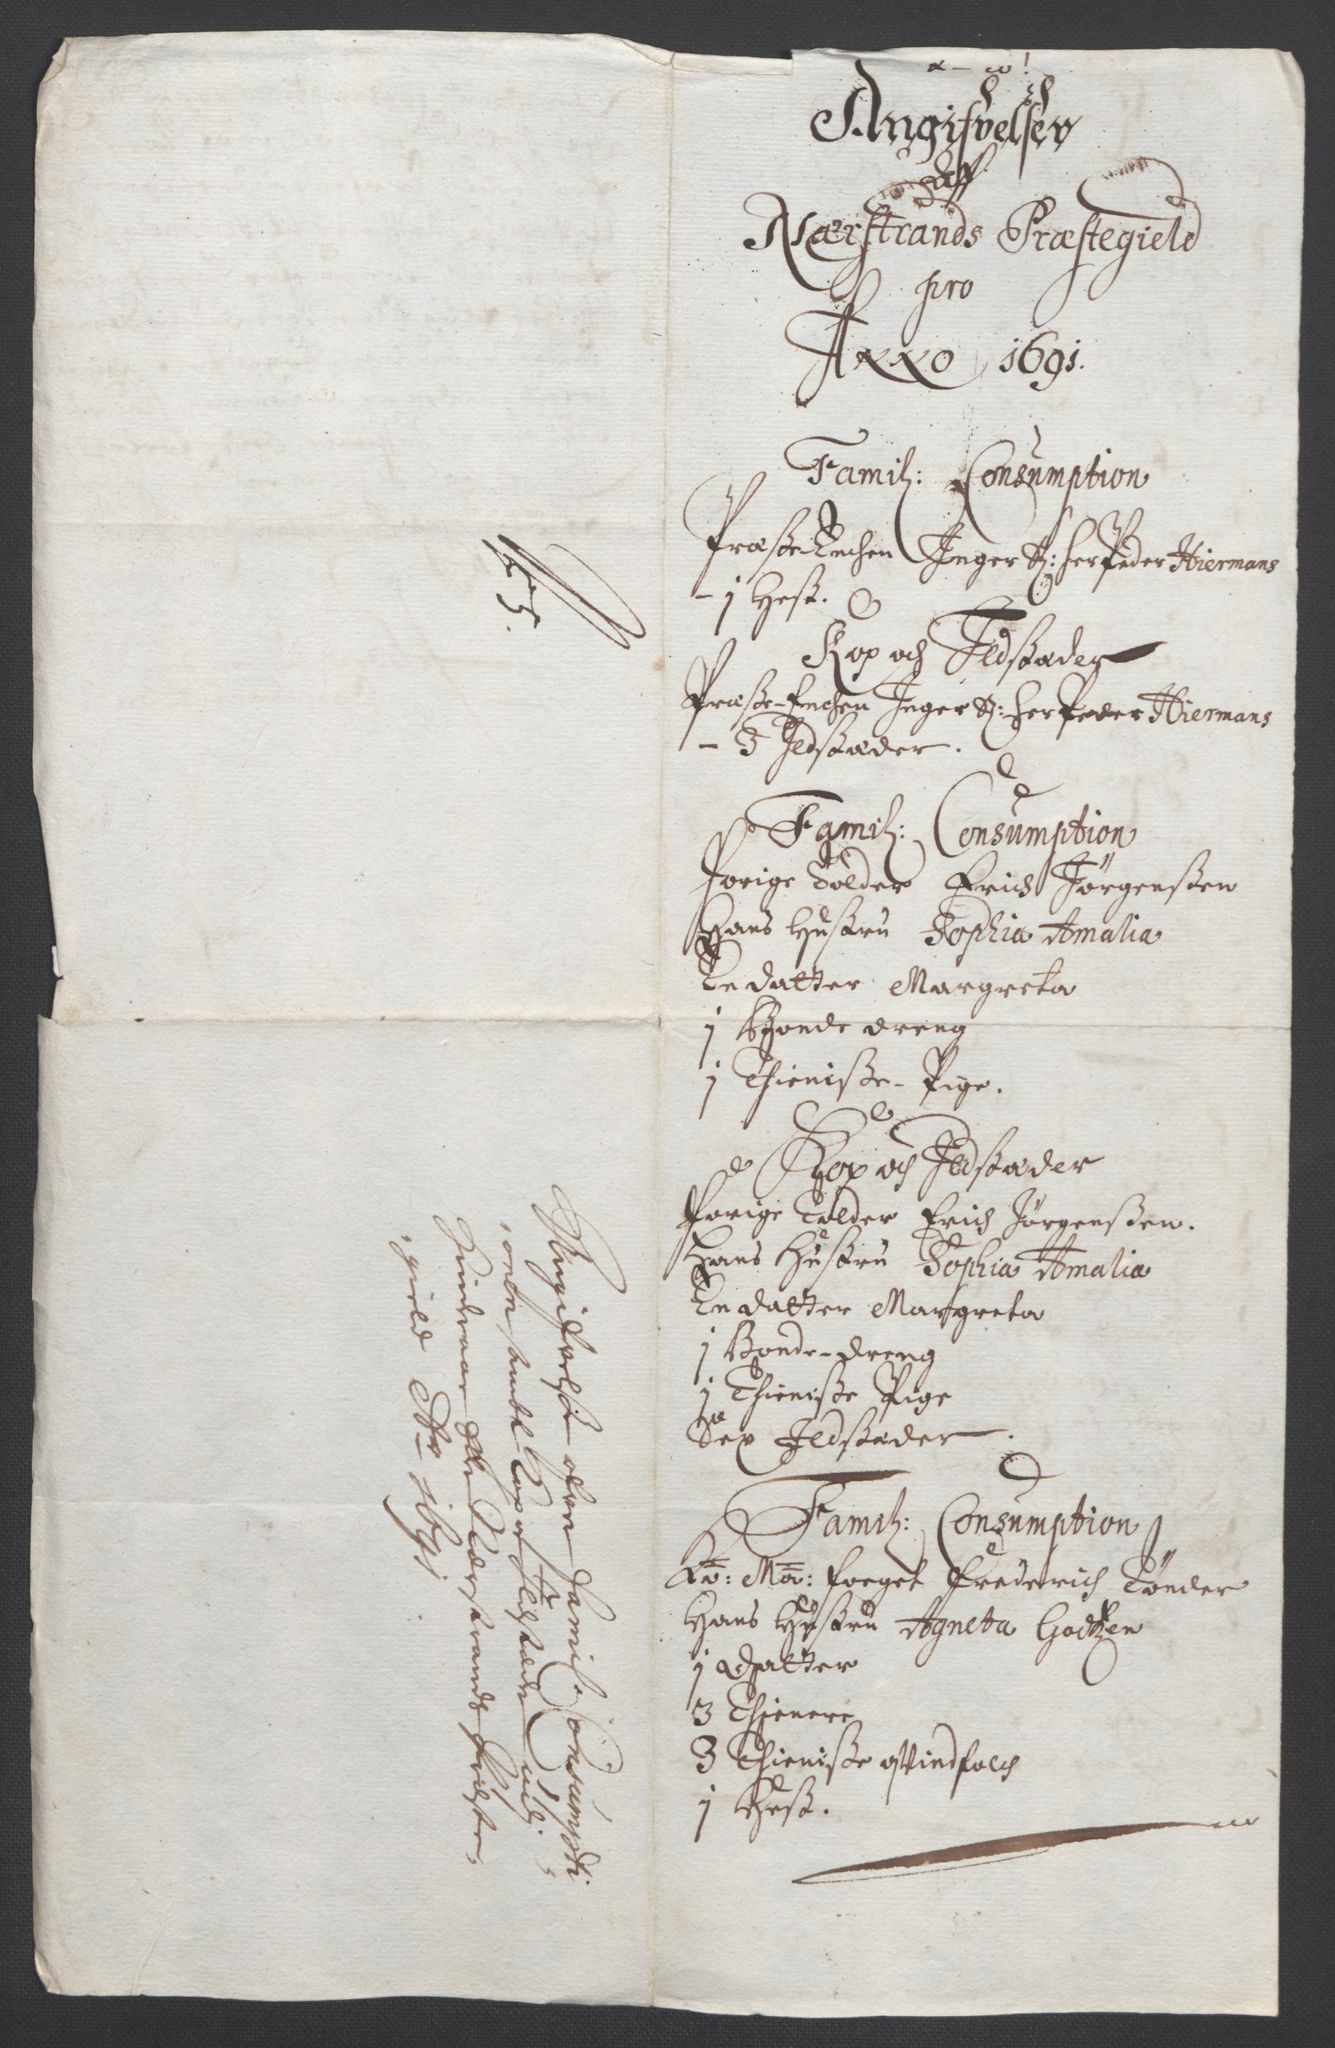 Angifvelser
Aff
Nærstrands Præstegield
pro
Anno 1691.
Famil: Consumption
Præste Enchen Inger Sl: Her Peder Hiermans
- 1 Hest.
Kop och Ildstæder
Præste-Enchen Inger Sl: Her Peder Hiermans
- 3 Ildstæder.
Famil: Consumption
Forige Tolder Erich Jørgenssen
Hans Hustru Sophia Amalia
En datter Margreta
1 Bonde dreng
1 Thieniste-Pige.
Kop och Ildstæder
Forige Tolder Erich Jørgenssen.
Hans Hustru Sophia Amalia
En datter Margreta
1 Bonde-dreng
1 Thieniste Pige
Sex Ildstæder.
Famil: Consumption
Ko: Ma: Foeget Frederich Tønder
Hans Hustru Agneta Godtzen
1 Datter
3 Thienere
3 Thieniste qvindfolch
1 Hest.
No 5.
Angifvelse ofver Famil: Consumpti-
onen sambt Kop og Ildstæder udj
Nærstrands Præste-
gield Ao 1691